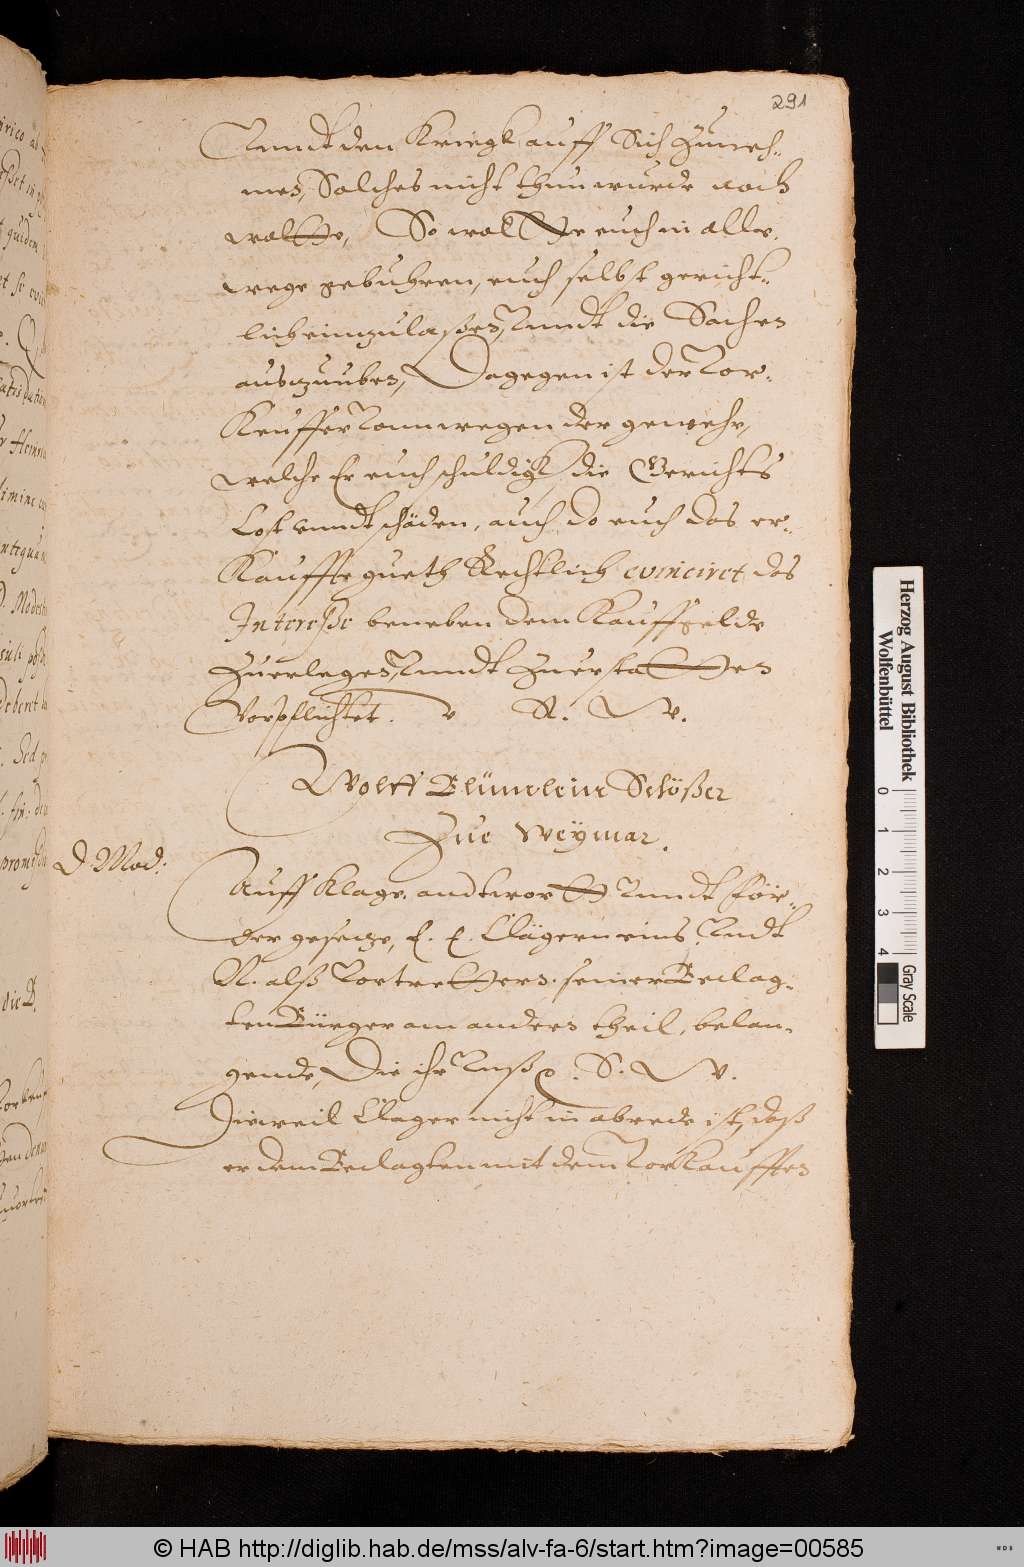 291
Vnndt den Kriegk auff Sich Zuneh-
men, Solches nicht thun wurde noch
wolthe, So wolthe euch in alle
wege gebuhren, euch selbst gericht-
lich einzulaßen, Vnndt die Sachen
auszuuben, Dagegen ist der Vor-
Keuffer Vonn wegen der gewehr,
welche Er euch schuldigk die Gerichts
Cost vnndt schäden, auch do euch das er-
Kauffte gueth Rechtlich evinciret, das
Interesse beneben dem Kauffgelde
Zuerlegen, Vnndt Zuerstatthen
Vorpflichtet. V. R. W.
Wolff Blümelein Schößer
Zue Weÿmar.
D. Mod:
Auff Klage, andtwortth Vnndt för-
der geseze, E. E. Clägern eins Vndt
N. alß Vortretthers seiner Beclag-
ten Bürger am andern theil, belan-
gende, Die ihr Vnß p. S. W.
Dieweil Clager nicht in abrede ist, daß
er dem Beclagten mit dem VorKauffen
Herzog August Bibliothek
Wolfenbüttel
0 1 2 3 4
Gray Scale
© HAB http://diglib.hab.de/mss/alv-fa-6/start.htm?image=00585